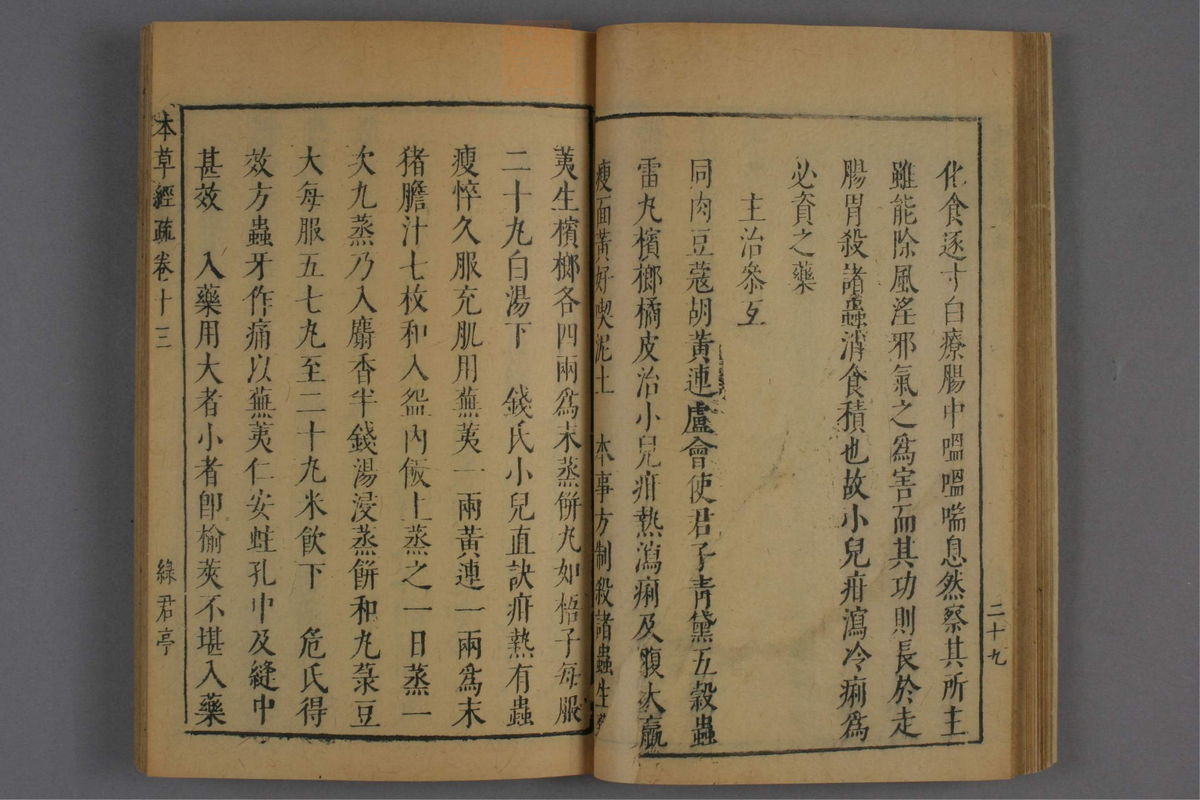 化食逐寸白療腸中嗢嗢喘息然察其所主
雖能除風淫邪氣之爲害而其功則長於走
腸胃殺諸蟲消食積也故小兒疳瀉冷痢爲
必資之藥
主治叅互
同肉豆蔻胡黃連盧會使君子靑黛五穀蟲
雷丸檳榔橘皮治小兒疳熱瀉痢及腹大羸
瘦面黃好喫泥土　本事方制殺諸蟲生蕪
二十九
夷生檳榔各四兩爲末蒸餠丸如梧子每服
二十丸白湯下　錢氏小兒直訣疳熱有蟲
瘦悴久服充肌用蕪荑一兩黃連一兩爲末
猪膽汁七枚和入盌內飯上蒸之一日蒸一
次九蒸乃入麝香半錢湯浸蒸餠和丸菉豆
大每服五七丸至二十丸米飮下　危氏得
效方蟲牙作痛以蕪荑仁安蛀孔中及縫中
甚效　入藥用大者小者卽榆莢不堪入藥
本草經疏卷十三
綠君亭